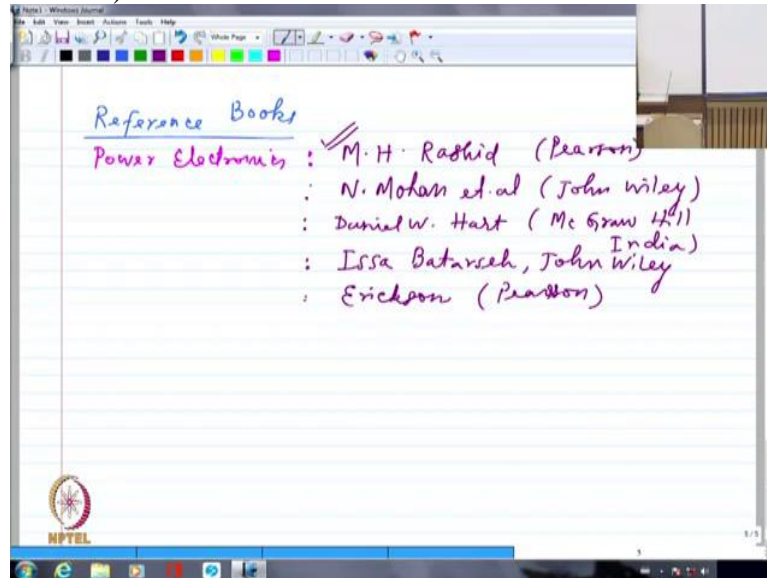 Note1 - Windows Journal
File Edit View Insert Actions Tools Help
Whole Page
B I
Reference Books
Power Electronics : M. H. Rashid (Pearson)
: N. Mohan et.al (John Wiley)
: Daniel W. Hart ( Mc Graw Hill
India)
: Issa Batarseh, John Wiley
: Erickson (Pearson)
NPTEL
5/5
5